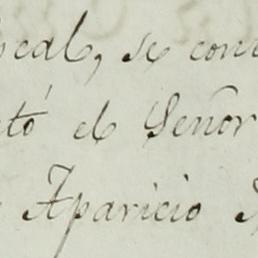 eal, se con
tó el Señor
Aparicio